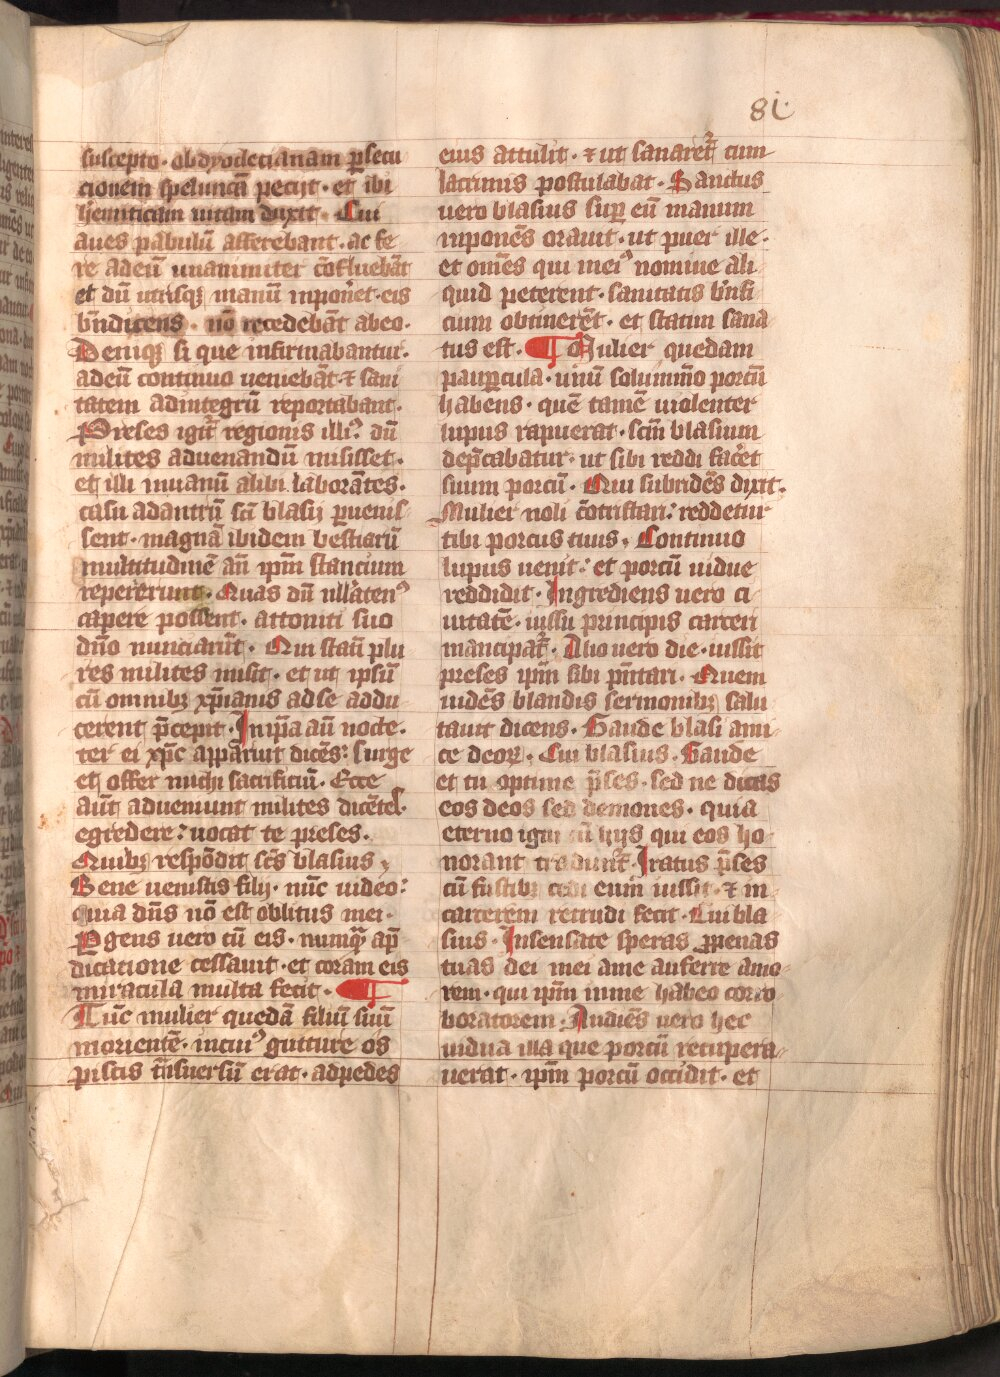 81
suscepto · ob dyocletianam ꝑsecu
cionem speluncā peciit · et ibi
hemiticam uitam duxit · Cui
aues pabulū afferebant · ac fe
re ad eū unanimiter cōfluebāt
et dū utrisqꝫ manū inponeret · eis
bn̄dicens · nō recedebāt ab eo ·
Deniqꝫ si que infirmabantur ·
ad eū continuo ueniebāt · ⁊ sani
tatem ad integrū reportabant ·
Preses igit̄ regionis illiꝰ dū
milites ad uenandū misisset ·
et illi inuanū alibi laborātes ·
casu ad antrū sc̄i blasij ꝑuenis
sent · magnā ibidem bestiarū
multitudinē an̄ ip̄m stancium
repererunt · Quas dū nllatenꝰ
capere possent · attoniti suo
dn̄o nunciarūt · Qui statī plu
res milites misit · et ut ipsū
cū omnibꝫ xp̄ianis ad se addu
cerent p̄cepit · In ip̄a aū nocte ·
ter ei xp̄c apparuit dicēs : surge
et offer michi sacrificiū · Ecce
aūt adueniunt milites dicētes ·
egredere : uocat te preses ·
Quibꝫ respōdit sc̄s blasius ·
Bene uenistis filij · nūc uideo :
quia dn̄s nō est oblitus mei ·
Pgens uero cū eis · numqꝫ a p̄
dicatione cessauit · et coram eis
miracula multa fecit · ¶
Tūc mulier quedā filiū suū
morientē · in cuiꝰ gutture os
piscis trāsuersū erat · ad pedes
eius attulit · ⁊ ut sanaret̄ cum
lacrimis postulabat · Sanctus
uero blasius suꝑ eū manum
inponēs orauit · ut puer ille ·
et om̄es qui in eiꝰ nomine ali
quid peterent · sanitatis bn̄fi
cium obtinerēt · et statim sana
tus est · ¶ Mulier quedam
pauꝑcula · unū solummō porcū
habens · quē tamē uiolenter
lupus rapuerat · scm̄ blasium
dep̄cabatur · ut sibi reddi facet
suum porcū · Qui subridēs dixit ·
Mulier noli cōtristari : reddetur
tibi porcus tuus · Continuo
lupus uenit : et porcū uidue
reddidit · Ingrediens uero ci
uitatē · iussu principis carceri
mancipat̄ · Alio uero die · iussit
preses ip̄m sibi pn̄tari · Quem
uidēs blandis sermonibꝫ salu
tauit dicens · Gaude blasi ami
ce deoꝝ · Cui blasius · Gaude
et tu optime p̄ses · sed ne dicas
eos deos sed demones · quia
eterno igni cū hijs qui eos ho
norant tradunt̄ · Iratus p̄ses
cū fustibꝫ cedi eum iussit · ⁊ in
carcerem retrudi fecit · Cui bla
sius · Insensate speras ꝓ penas
tuas dei mei a me auferre amo
rem · qui ip̄m in me habeo corro
boratorem · Audiēs uero hec
uidua illa que porcū recupera
uerat · ip̄m porcū occidit · et